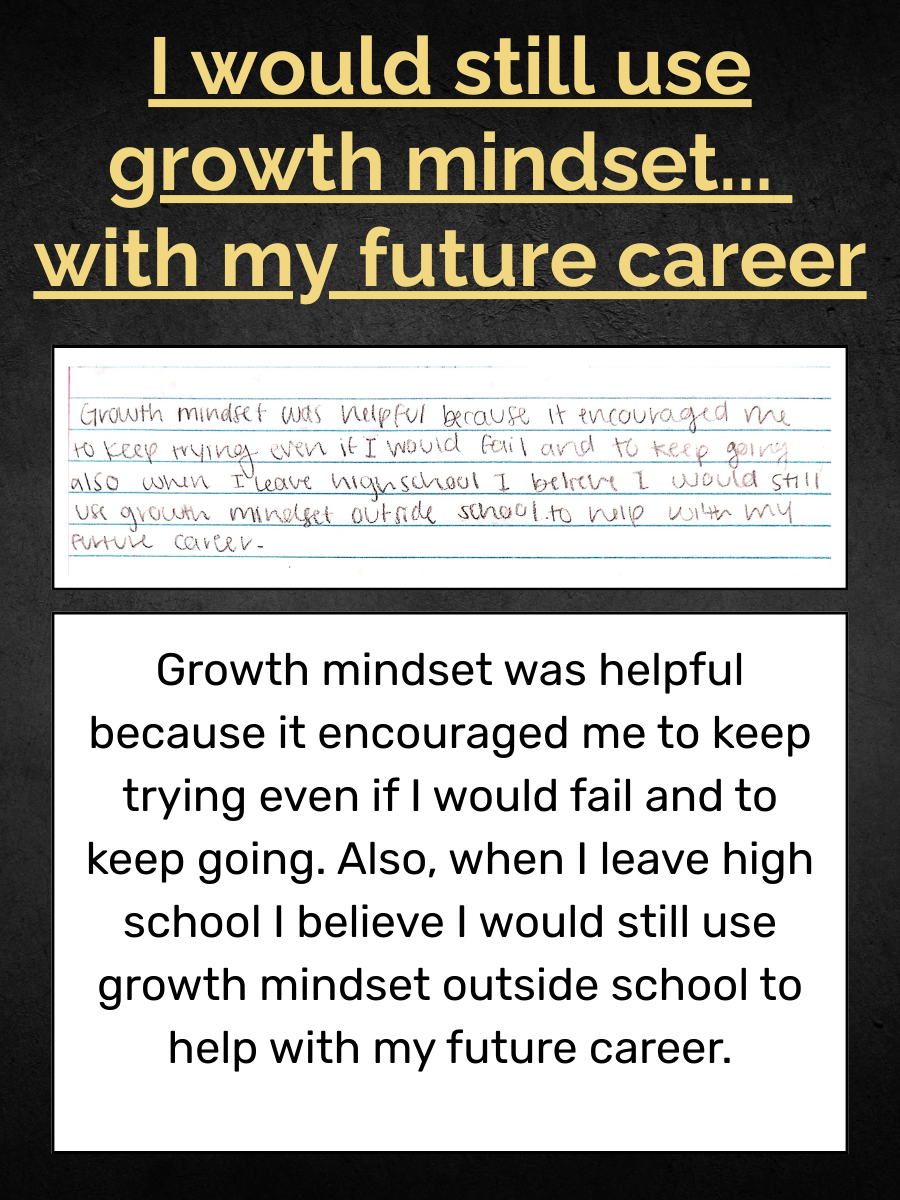 I would still use
growth mindset...
with my future career
Growth mindset was helpful because it encouraged me
to keep trying even if I would fail and to keep going
also when I leave highschool I believe I would still
use growth mindset outside school. to help with my
future career.
Growth mindset was helpful
because it encouraged me to keep
trying even if I would fail and to
keep going. Also, when I leave high
school I believe I would still use
growth mindset outside school to
help with my future career.